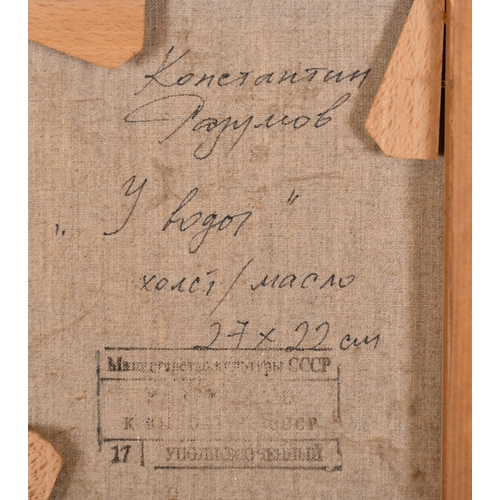 Константин
Разумов
„У воды"
холст/масло
27 x 22 см
Министерство культуры СССР
К
17 УПОЛНОМОЧЕННЫЙ